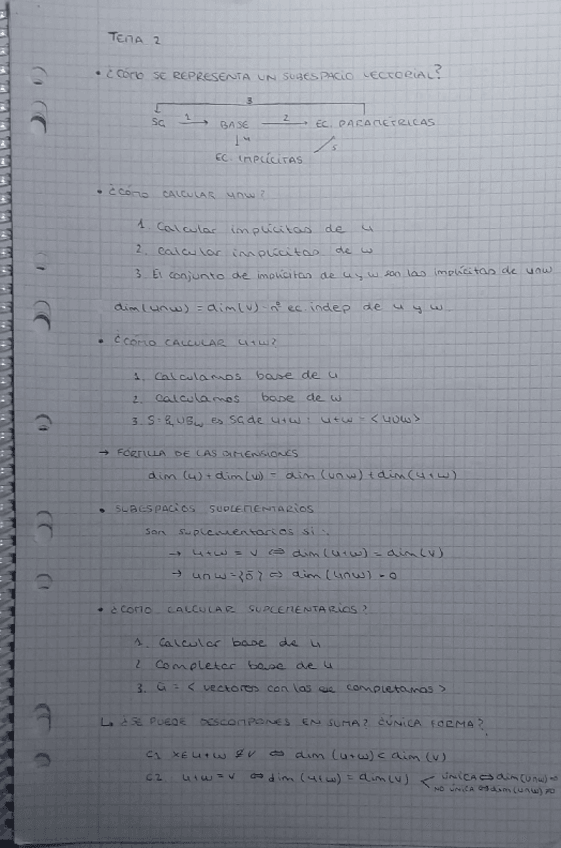 TEMA 2
• ¿CÓMO SE REPRESENTA UN SUBESPACIO VECTORIAL?
3
SG 1→ BASE 2→ EC. PARAMÉTRICAS
↓4 5
EC. IMPLÍCITAS
• ¿CÓMO CALCULAR U∩W?
1. Calcular implícitas de U
2. Calcular implícitas de W
3. El conjunto de implícitas de U y W son las implícitas de U∩W
dim(U∩W) = dim(V) - nº ec indep de U y W
• ¿CÓMO CALCULAR U+W?
1. Calculamos base de U
2. Calculamos base de W
3. S = BᵤUBw es SG de U+W : U+W = <UUW>
→ FÓRMULA DE LAS DIMENSIONES
dim(U) + dim(W) = dim(U∩W) + dim(U+W)
• SUBESPACIOS SUPLEMENTARIOS
Son suplementarios si :
→ U+W = V ⇔ dim(U+W) = dim(V)
→ U∩W = {0̄} ⇔ dim(U∩W) = 0
• ¿CÓMO CALCULAR SUPLEMENTARIOS?
1. Calcular base de U
2. Completar base de U
3. = < vectores con las completamos >
↳ ¿SE PUEDE DESCOMPONER EN SUMA? ¿ÚNICA FORMA?
C1 X∈U+W ≠ V ⇔ dim(U+W) < dim(V)
C2. U+W = V ⇔ dim(U+W) = dim(V) < ÚNICA ⇔ dim(U∩W)=0
NO ÚNICA ⇔ dim(U∩W)≠0